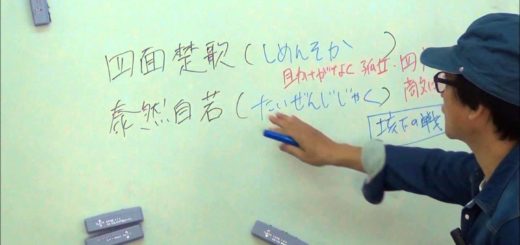 四面楚歌(しめんそか)
助けがなく孤立・四
泰然自若(たいぜんじじゃく)
敵に
垓下の戦